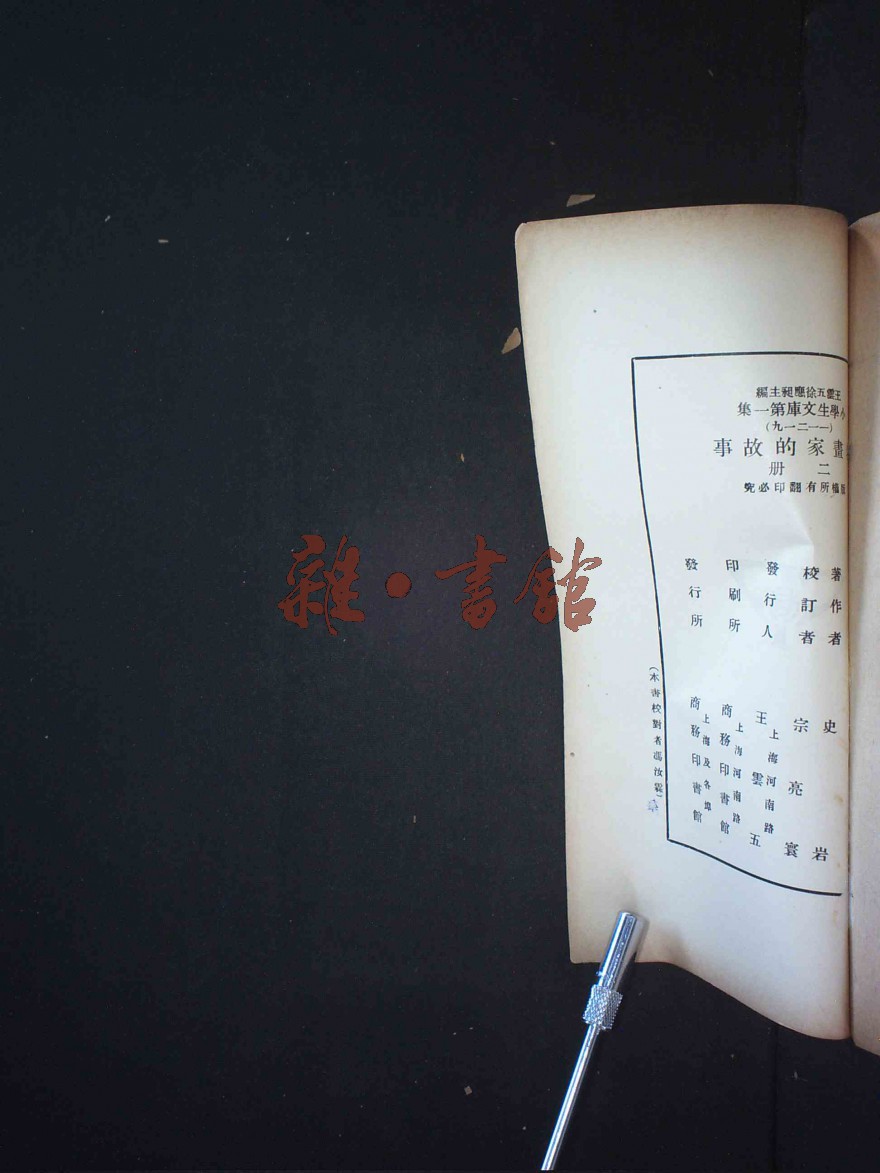 王雲五徐應昶主編
小學生文庫第一集
(一一二一九)
畫家的故事
二冊
版權所有翻印必究
著作者 史岩
校訂者 宗亮寰
發行人 王雲五
上海河南路
印刷所 商務印書館
上海河南路
發行所 商務印書館
上海及各埠
(本書校對者馮汝霖)
雜·書館